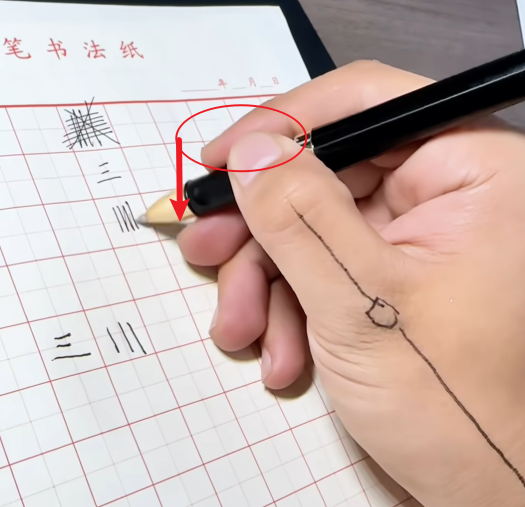 笔书法纸
年 月 日
三
三